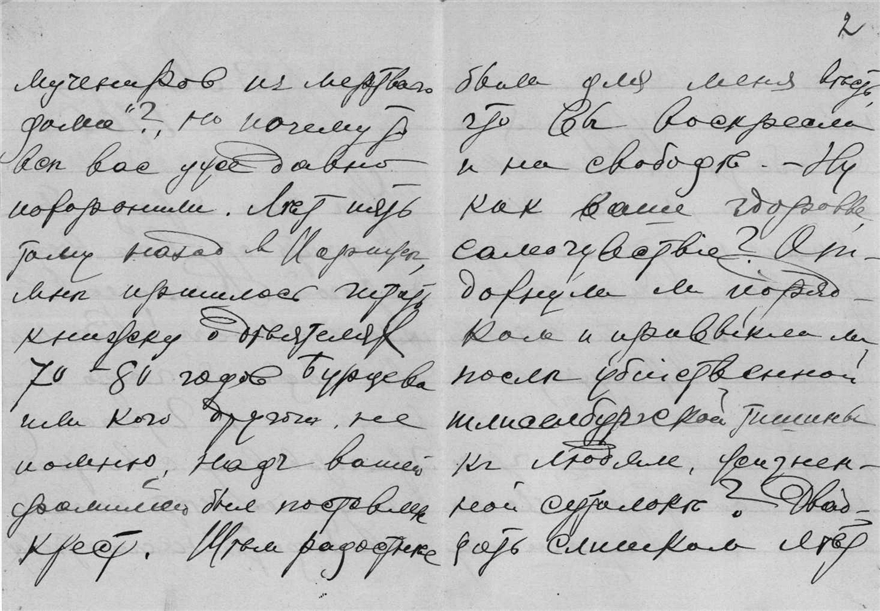 2
мучеников из мертваго
дома"?, но почему то
всѣ вас уже давно
похоронили. Лѣт пять
тому назад в Париже,
мнѣ пришлось читать
книжку о дѣятелях
70-80 годов Бурцева
или кого другого, не
помню, надъ вашей
фамиліей был поставлен
крест. Тѣм радостнѣе
было для меня узнать,
что Вы воскресли
и на свободѣ. - Ну
как ваше здоровье,
самочувствіе? От-
дохнули ли поряд-
ком и привыкли ли,
послѣ убійственной
шлисельбургской тишины
къ людям, жизнен-
ной сутолокѣ? Двад-
цать слишком лѣт